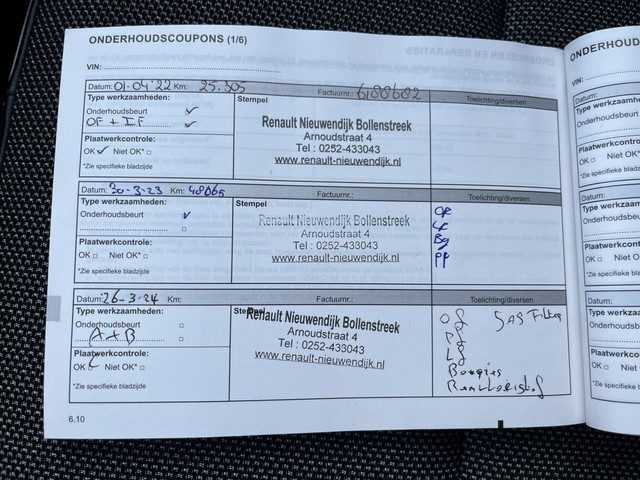 ONDERHOUDSCOUPONS (1/6)
VIN:
Datum: 01-04-'22 Km: 25.305 Factuurnr.: 6188682
Type werkzaamheden: Stempel Toelichting/diversen
Onderhoudsbeurt ✓
OF + IF ✓
Plaatwerkcontrole:
OK ✓ Niet OK* □
*Zie specifieke bladzijde
Renault Nieuwendijk Bollenstreek
Arnoudstraat 4
Tel : 0252-433043
www.renault-nieuwendijk.nl
Datum: 30-3-23 Km: 48065 Factuurnr.:
Type werkzaamheden: Stempel Toelichting/diversen
Onderhoudsbeurt ✓
□
Plaatwerkcontrole:
OK □ Niet OK* □
*Zie specifieke bladzijde
Renault Nieuwendijk Bollenstreek
Arnoudstraat 4
Tel : 0252-433043
www.renault-nieuwendijk.nl
PF
Datum: 26-3-24 Km: Factuurnr.:
Type werkzaamheden: Stempel Toelichting/diversen
Onderhoudsbeurt □
A+B □
Plaatwerkcontrole:
OK Niet OK* □
*Zie specifieke bladzijde
Renault Nieuwendijk Bollenstreek
Arnoudstraat 4
Tel : 0252-433043
www.renault-nieuwendijk.nl
Bougies
6.10
ONDERHOUD
VIN:
Datum:
Type werkzaam
Onderhoudsbeu
Plaatwerkcontro
OK □ Niet OK
*Zie specifieke bla
Datum:
Type werkzaam
Onderhoudsbeu
Plaatwerkcontro
OK □ Niet OK
*Zie specifieke bla
Datum:
Type werkzaam
Onderhoudsbeu
Plaatwerkcontro
OK □ Niet OK
*Zie specifieke bla